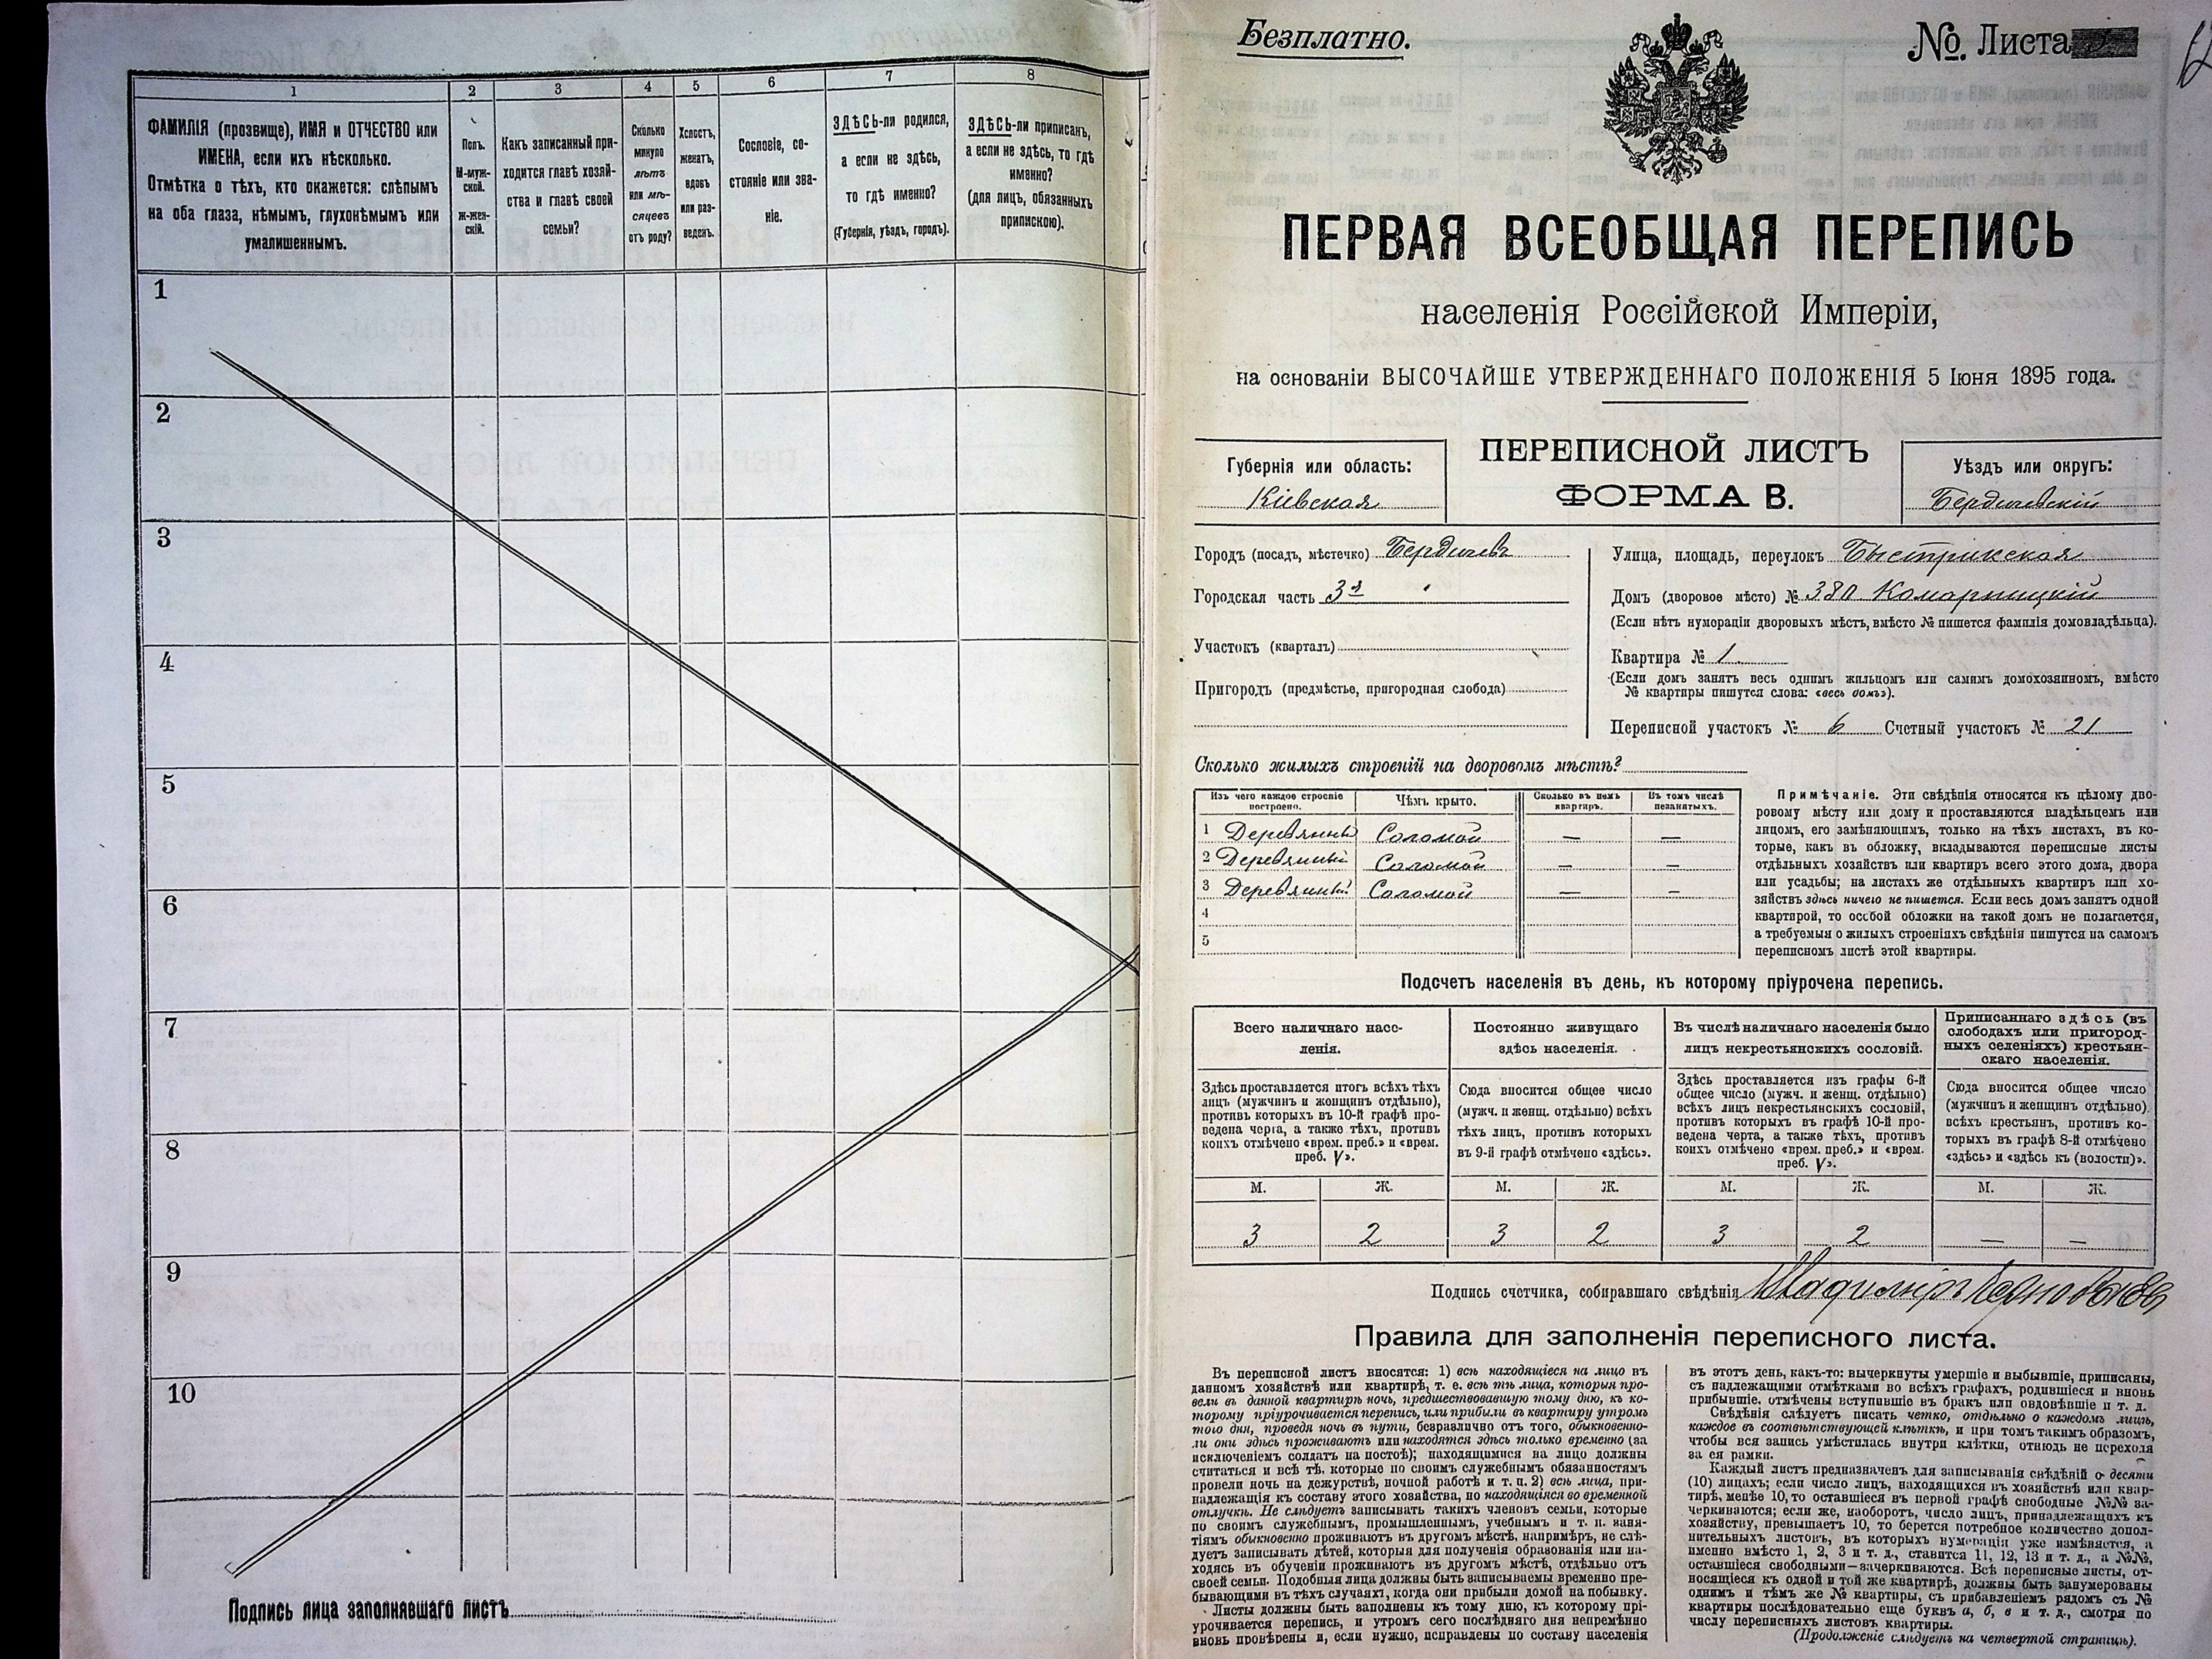 1
2
3
4
5
6
7
8
ФАМИЛІЯ (прозвище), ИМЯ и ОТЧЕСТВО или
ИМЕНА, если ихъ нѣсколько.
Отмѣтка о тѣхъ, кто окажется: слѣпымъ
на оба глаза, нѣмымъ, глухонѣмымъ или
умалишеннымъ.
Полъ.
М-муж-
ской.
ж-жен-
скій.
Какъ записанный при-
ходится главѣ хозяй-
ства и главѣ своей
семьи?
Сколько
минуло
лѣтъ
или мѣ-
сяцевъ
отъ роду?
Холостъ,
женатъ,
вдовъ
или раз-
веденъ.
Сословіе, со-
стояніе или зва-
ніе.
ЗДѢСЬ-ли родился,
а если не здѣсь,
то гдѣ именно?
(Губернія, уѣздъ, городъ).
ЗДѢСЬ-ли приписан,
а если не здѣсь, то гдѣ
именно?
(для лицъ, обязанныхъ
припискою).
1
2
3
4
5
6
7
8
9
10
Подпись лица заполнявшаго листъ
Безплатно.
№. Листа
ПЕРВАЯ ВСЕОБЩАЯ ПЕРЕПИСЬ
населенія Россійской Имперіи,
на основаніи ВЫСОЧАЙШЕ УТВЕРЖДЕННАГО ПОЛОЖЕНІЯ 5 Іюня 1895 года.
Губернія или область:
Кіевская
ПЕРЕПИСНОЙ ЛИСТЪ
ФОРМА В.
Уѣздъ или округъ:
Бердичевскій
Городъ (посадъ, мѣстечко) Бердичевъ
Городская часть 3я
Участокъ (кварталъ)
Пригородъ (предмѣстье, пригородная слобода)
Улица, площадь, переулокъ Быстрикская
Домъ (дворовое мѣсто) № 380 Комарницкій
(Если нѣтъ нумораціи дворовыхъ мѣстъ, вмѣсто № пишется фамилія домовладѣльца).
Квартира № 1.
(Если домъ занятъ весь однимъ жильцомъ или самимъ домохозяиномъ, вмѣсто
№ квартиры пишутся слова: «весь домъ»).
Переписной участокъ № 6 Счетный участокъ № 21
Сколько жилыхъ строеній на дворовомъ мѣстѣ?
Изъ чего каждое строеніе
построено.
Чѣмъ крыто.
Сколько въ немъ
квартиръ.
Въ томъ числѣ
незанятыхъ.
1 Деревянный Соломой — —
2 Деревянный Соломой — —
3 Деревянный Соломой — —
4
5
Примѣчаніе. Эти свѣдѣнія относятся къ цѣлому дво-
ровому мѣсту или дому и проставляются владѣльцемъ или
лицомъ, его замѣняющимъ, только на тѣхъ листахъ, въ ко-
торые, какъ въ обложку, вкладываются переписные листы
отдѣльныхъ хозяйствъ или квартиръ всего этого дома, двора
или усадьбы; на листахъ же отдѣльныхъ квартиръ или хо-
зяйствъ здѣсь ничего не пишется. Если весь домъ занятъ одной
квартирой, то особой обложки на такой домъ не полагается,
а требуемыя о жилыхъ строеніяхъ свѣдѣнія пишутся на самомъ
переписномъ листѣ этой квартиры.
Подсчетъ населенія въ день, къ которому пріурочена перепись.
Всего наличнаго насе-
ленія.
Постоянно живущаго
здѣсь населенія.
Въ числѣ наличнаго населенія было
лицъ некрестьянскихъ сословій.
Приписаннаго здѣсь (въ
слободахъ или пригород-
ныхъ селеніяхъ) крестьян-
скаго населенія.
Здѣсь проставляется итогъ всѣхъ тѣхъ
лицъ (мужчинъ и женщинъ отдѣльно),
противъ которыхъ въ 10-й графѣ про-
ведена черта, а также тѣхъ, противъ
коихъ отмѣчено «врем. преб.» и «врем.
преб. V».
Сюда вносится общее число
(мужч. и женщ. отдѣльно) всѣхъ
тѣхъ лицъ, противъ которыхъ
въ 9-й графѣ отмѣчено «здѣсь».
Здѣсь проставляется изъ графы 6-й
общее число (мужч. и женщ. отдѣльно)
всѣхъ лицъ некрестьянскихъ сословій,
противъ которыхъ въ графѣ 10-й про-
ведена черта, а также тѣхъ, противъ
коихъ отмѣчено «врем. преб.» и «врем.
преб. V».
Сюда вносится общее число
(мужчинъ и женщинъ отдѣльно)
всѣхъ крестьянъ, противъ ко-
торыхъ въ графѣ 8-й отмѣчено
«здѣсь» и «здѣсь къ (волости)».
М. Ж. М. Ж. М. Ж. М. Ж.
3 2 3 2 3 2 — —
Подпись счетчика, собиравшаго свѣдѣнія Владиміръ
Правила для заполненія переписного листа.
Въ переписной листъ вносятся: 1) всѣ находящіеся на лицо въ
данномъ хозяйствѣ или квартирѣ, т. е. всѣ тѣ лица, которыя про-
вели въ данной квартирѣ ночь, предшествовавшую тому дню, къ ко-
торому пріурочивается перепись, или прибыли въ квартиру утромъ
того дня, проведя ночь въ пути, безразлично отъ того, обыкновенно-
ли они здѣсь проживаютъ или находятся здѣсь только временно (за
исключеніемъ солдатъ на постоѣ); находящимися на лицо должны
считаться и всѣ тѣ, которые по своимъ служебнымъ обязанностямъ
провели ночь на дежурствѣ, ночной работѣ и т. п. 2) всѣ лица, при-
надлежащія къ составу этого хозяйства, но находящіяся во временной
отлучкѣ. Не слѣдуетъ записывать такихъ членовъ семьи, которые
по своимъ служебнымъ, промышленнымъ, учебнымъ и т. п. заня-
тіямъ обыкновенно проживаютъ въ другомъ мѣстѣ, напримѣръ, не слѣ-
дуетъ записывать дѣтей, которыя для полученія образованія или на-
ходясь въ обученіи проживаютъ въ другомъ мѣстѣ, отдѣльно отъ
своей семьи. Подобныя лица должны быть записываемы временно пре-
бывающими въ тѣхъ случаяхъ, когда они прибыли домой на побывку.
Листы должны быть заполнены къ тому дню, къ которому прі-
урочивается перепись, и утромъ сего послѣдняго дня непремѣнно
вновь провѣрены и, если нужно, исправлены по составу населенія
въ этотъ день, какъ-то: вычеркнуты умершіе и выбывшіе, приписаны,
съ надлежащими отмѣтками во всѣхъ графахъ, родившіеся и вновь
прибывшіе, отмѣчены вступившіе въ бракъ или овдовѣвшіе и т. д.
Свѣдѣнія слѣдуетъ писать четко, отдѣльно о каждомъ лицѣ,
каждое въ соотвѣтствующей клѣткѣ, и при томъ такимъ образомъ,
чтобы вся запись умѣстилась внутри клѣтки, отнюдь не переходя
за ея рамки.
Каждый листъ предназначенъ для записыванія свѣдѣній о десяти
(10) лицахъ; если число лицъ, находящихся въ хозяйствѣ или квар-
тирѣ, менѣе 10, то оставшіеся въ первой графѣ свободные №№ за-
черкиваются; если же, наоборотъ, число лицъ, принадлежащихъ къ
хозяйству, превышаетъ 10, то берется потребное количество допол-
нительныхъ листовъ, въ которыхъ нумерація уже измѣняется, а
именно вмѣсто 1, 2, 3 и т. д., ставится 11, 12, 13 и т. д., а №№,
оставшіеся свободными—зачеркиваются. Всѣ переписные листы, от-
носящіеся къ одной и той же квартирѣ, должны быть занумерованы
однимъ и тѣмъ же № квартиры, съ прибавленіемъ рядомъ съ №
квартиры послѣдовательно еще буквъ а, б, в и т. д., смотря по
числу переписныхъ листовъ квартиры.
(Продолженіе слѣдуетъ на четвертой страницѣ).